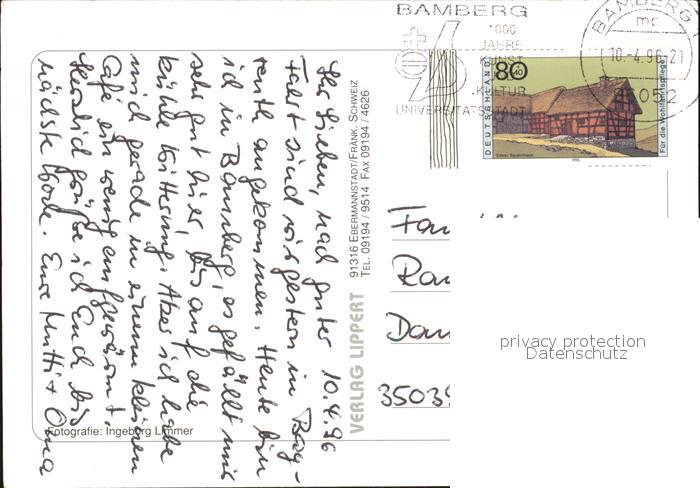 BAMBERG
1000
JAHRE
KUNST
KULTUR
UNIVERSITÄTSSTADT
BAMBERG 1
mc
10.-4.96-21
96052
80
+40
DEUTSCHLAND
Für die Wohlfahrtspflege
Eifeler Bauernhaus
1995
10.4.96
Ihr Lieben, nach guter
Fahrt sind wir gestern in Bay-
reuth angekommen. Heute bin
ich in Bamberg, es gefällt mir
sehr gut hier, bis auf die
kühle Witterung. Aber ich habe
mich gerade in einem kleinen
Café ein wenig aufgewärmt.
Herzlich grüße ich Euch bis
nächste Woche. Eure Mutti + Oma
91316 EBERMANNSTADT/FRÄNK. SCHWEIZ
TEL. 09194 / 9514 FAX 09194 / 4626
VERLAG LIPPERT
Fotografie: Ingeborg Limmer
Fam
35039
privacy protection
Datenschutz